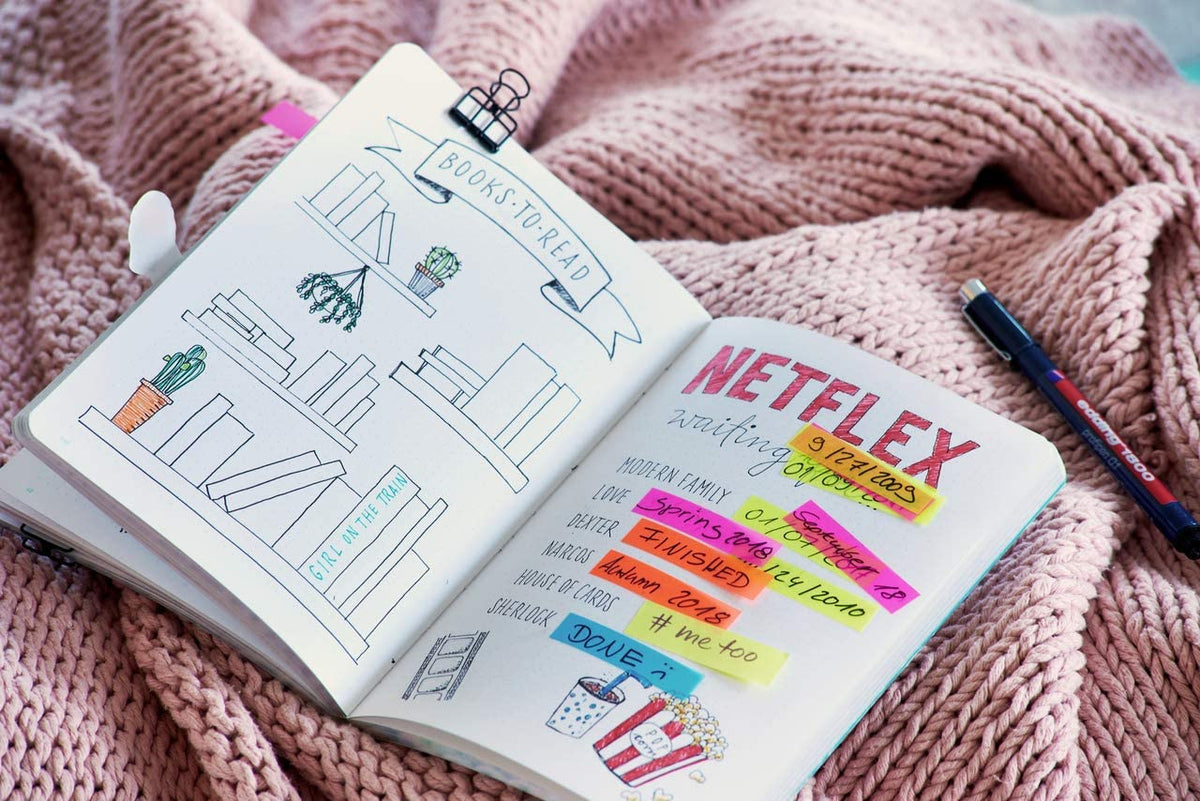 BOOKS·TO·READ
GIRL ON THE TRAIN
NETFLEX
waiting
9/27/2009
MODERN FAMILY
LOVE Spring 2018
01/07/
September 18
DEXTER FINISHED
/24/2010
NARCOS Autumn 2018
HOUSE OF CARDS #me too
SHERLOCK DONE
POP
edding 1800
profipen 0.1